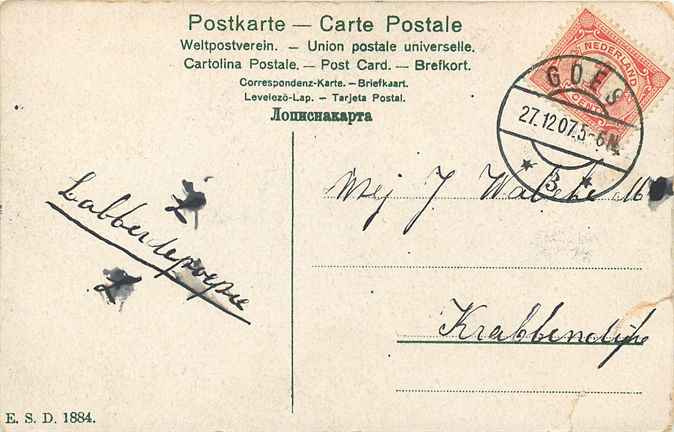 Postkarte — Carte Postale
Weltpostverein. — Union postale universelle.
Cartolina Postale. — Post Card. — Brefkort.
Correspondenz-Karte. — Briefkaart.
Levelezö-Lap. — Tarjeta Postal.
Лописнакарта
NEDERLAND
CENT
GOES
27.12.07.5-6N.
* 3 *
Mej J Wabeke M
L
Labberdepoepie
L
Krabbendijke
E. S. D. 1884.